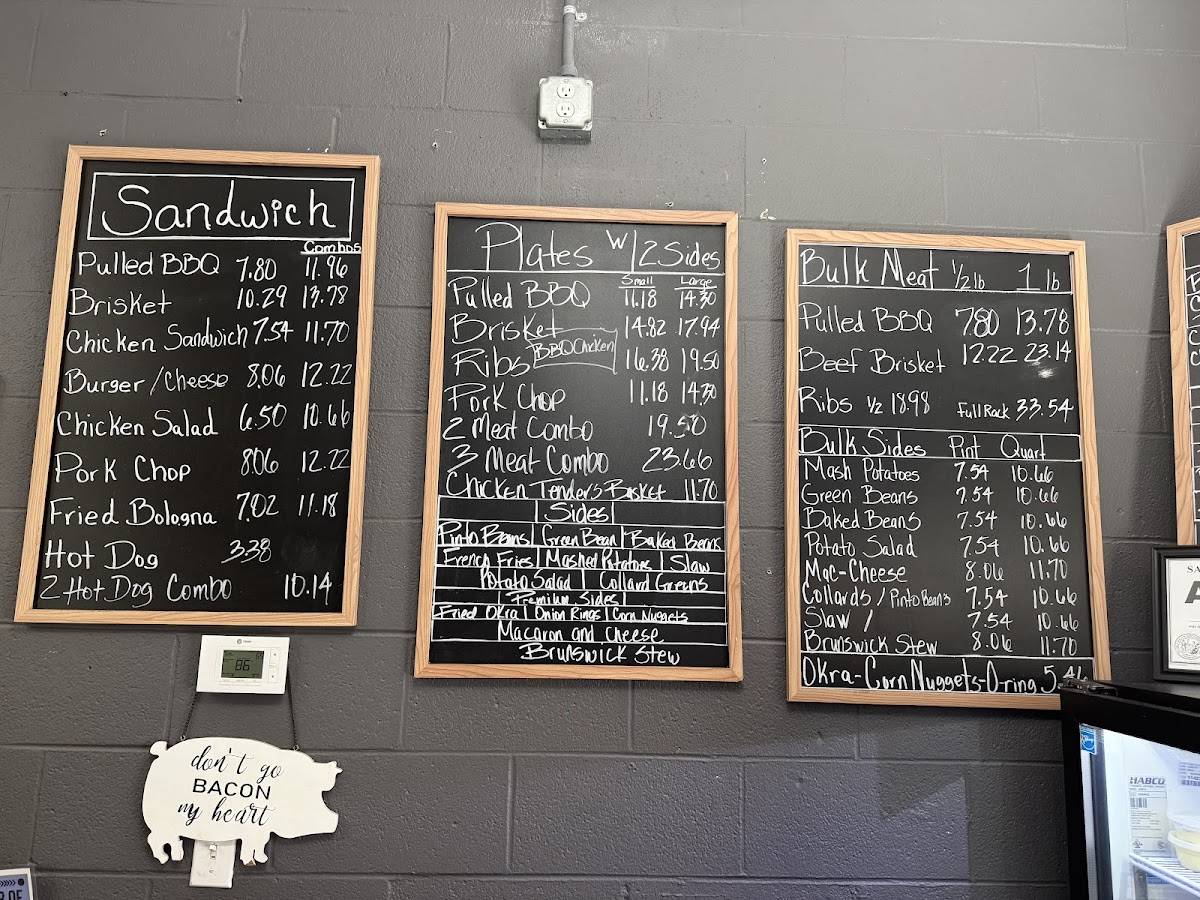 Sandwich
Combos
Pulled BBQ 7.80 11.96
Brisket 10.29 13.78
Chicken Sandwich 7.54 11.70
Burger/Cheese 8.06 12.22
Chicken Salad 6.50 10.66
Pork Chop 8.06 12.22
Fried Bologna 7.02 11.18
Hot Dog 3.38
2 Hot Dog Combo 10.14
Plates W/2 Sides
Small Large
Pulled BBQ 11.18 14.30
Brisket 14.82 17.94
BBQ Chicken
Ribs 16.38 19.50
Pork Chop 11.18 14.30
2 Meat Combo 19.50
3 Meat Combo 23.66
Chicken Tenders Basket 11.70
Sides
Pinto Beans | Green Bean | Baked Beans
French Fries | Mashed Potatoes | Slaw
Potato Salad | Collard Greens
Premium Sides
Fried Okra | Onion Rings | Corn Nuggets
Macaron and Cheese
Brunswick Stew
Bulk Meat 1/2 lb 1 lb
Pulled BBQ 7.80 13.78
Beef Brisket 12.22 23.14
Ribs 1/2 18.98 Full Rack 33.54
Bulk Sides Pint Quart
Mash Potatoes 7.54 10.66
Green Beans 7.54 10.66
Baked Beans 7.54 10.66
Potato Salad 7.54 10.66
Mac-Cheese 8.06 11.70
Collards / Pinto Beans 7.54 10.66
Slaw / 7.54 10.66
Brunswick Stew 8.06 11.70
Okra-Corn Nuggets-O-ring 5.46
86
don't go
BACON
my heart
HABCO